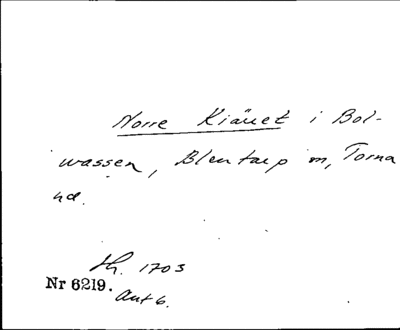 Norre Kiäuet i Bol-
wassen, Blentarp m, Torna
hd.
Lh. 1703
Nr 6219.
Ant 6.